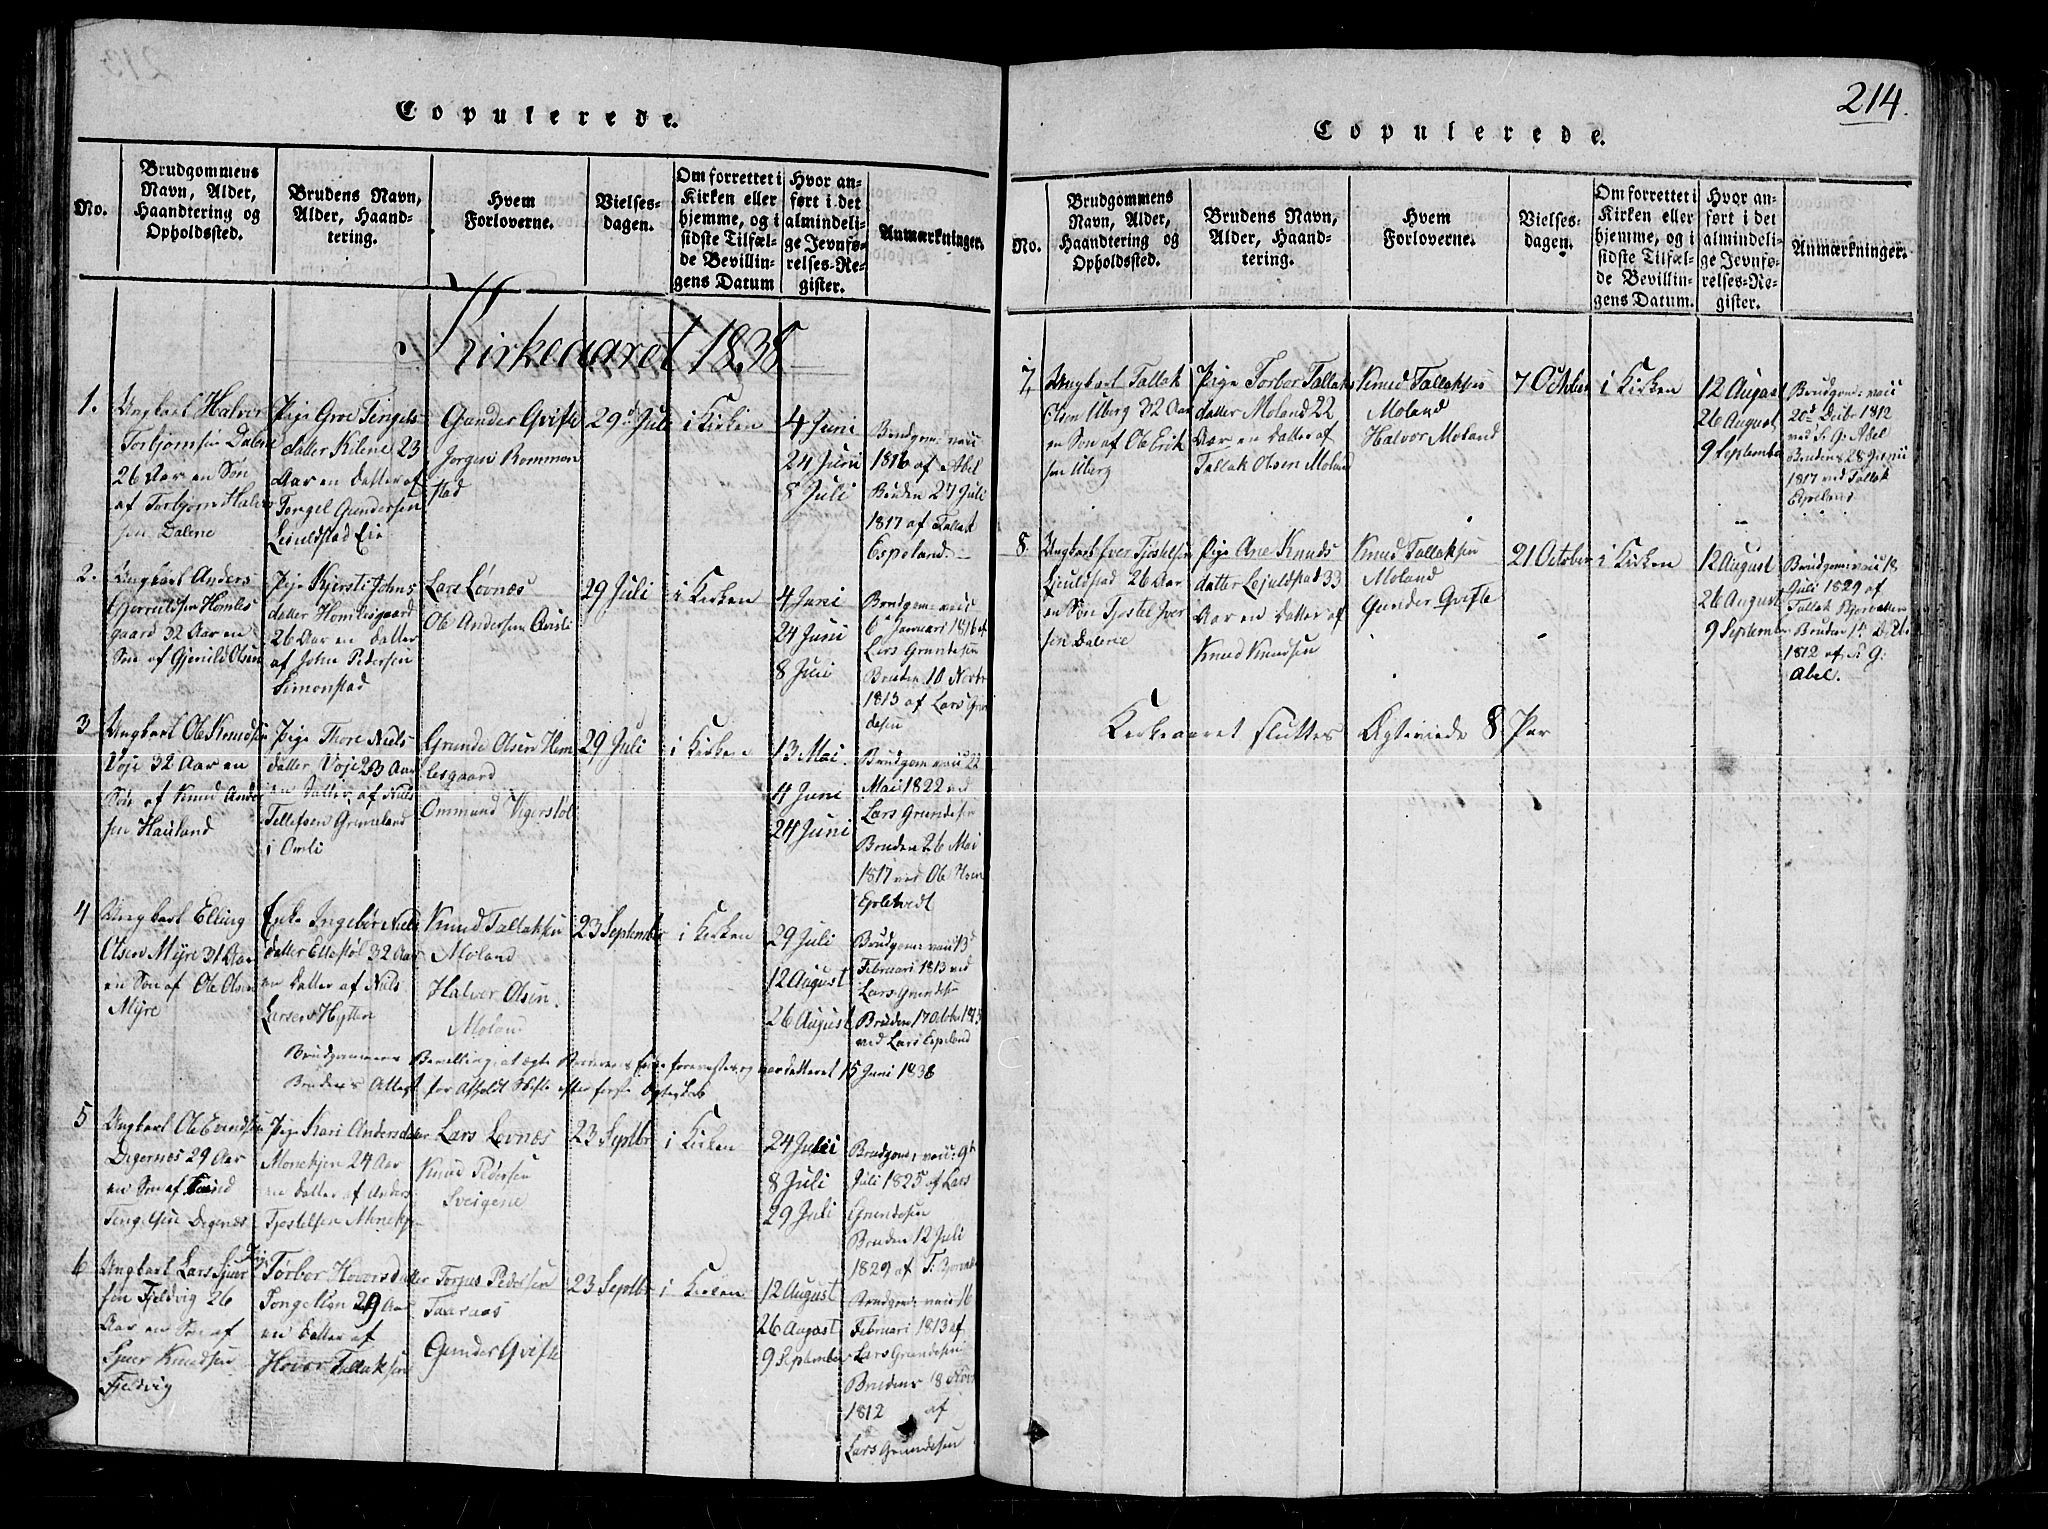 Copulerede.
No.
Brudgommens Navn, Alder, Haandtering og Opholdssted.
Brudens Navn, Alder, Haandtering.
Hvem Forloverne.
Vielsesdagen.
Om forrettet i Kirken eller hjemme, og i sidste Tilfælde Bevillingens Datum
Hvor anført i det almindelige Jevnførelses-Register.
Anmærkninger.
Kirkeaaret 1838
1.
Ungkarl Halvor
Torbjornsen Dalene
26 Aar en Søn
af Torbjorn Halvor
sen Dalene
Pige Groe Tengels
datter Kilene 23
Aar en datter af
Tengel Gundersen
Leiuldstad Eie
Gunder Gvifte
Jorgen Rommon
stad
29d Juli
i Kirken
4 Juni
24 Juni
8 Juli
Brudgom: vaci
1816 af Abel
Bruden 27 Juli
1817 af Tallak
Espeland
2.
Ungkarl Anders
Gjerulfsen Homles
gaard 32 Aar en
Søn af Gjerulf Olsen
Pige Kjersti Johns
datter Homlesgaard
26 Aar en datter
af John Pedersen
Simonstad
Lars Løvnæs
Ole Andersen
29 Juli
i Kirken
4 Juni
24 Juni
8 Juli
Brudgom: vaci
6te Januari 1816 af
Lars Grundesen
Bruden 10 Novbr
1813 af Lars Grun
desen
3
Ungkarl Ole Knudsen
Voje 32 Aar en
Søn af Knud Ander
sen Hauland
Pige Thore Niels
datter Voje 23 Aar
en datter af Niels
Tellefsen Grimeland
i Omli
Grunde Olsen Hom
lesgaard
Ommund Vigerstøl
29 Juli
i Kirken
13 Mai.
4 Juni
24 Juni
Brudgom vaci 22
Mai 1822 ved
Lars Grundesen
Bruden 26 Mai
1817 ved Ole
4
Ungkarl Elling
Olsen Mÿre 31 Aar
en Søn af Ole Olsen
Mÿre
Enke Ingebor Niels
datter Ettestøl 32 Aar
en datter af Niels
Larsen Hytten
Knud Tallaksen
Moland
Halvor Olsen
Moland
23 September
i Kirken
29 Juli
12 August
26 August
Brudgom: vaci 13d
Februari 1813 ved
Lars Grundesen
Bruden 17 Octbr 1813
ved Lars Espeland
Brudgommens Bevilling at ægte
forevistes og var dateret 15 Juni 1838
Brudens Attest for Afholdt Skifte efter første Ægteskab
5
Ungkarl Ole Evindsen
Degernes 29 Aar
en Søn af Evind
Tengelsen Degenæs
Pige Kari Andersdatter
Monekjen 24 Aar
en datter af Anders
Tjostelsen Monekj
Lars Lovnæs
Knud Pedersen
Sveigene
23 Septbr
i Kirken
24 Juni
8 Juli
29 Juli
Brudgom: vaci: 9de
Juli 1825 af Lars
Grundesen
Bruden 12 Juli
1829 af T: Bjorvatn
6
Ungkarl Lars Sjuer
sen Fjeldvig 26
Aar en Søn af
Sjuer Knudsen
Fjeldvig
Pige
Torbor Hovorsdatter
Tongelløn 29 Aar
en datter af
Hovor Tallaksen
Torpus Pedersen
Taarnæs
Gunder Gvifte
23 Septbr
i Kirken
12 August
26 August
9 September
Brudgom: vaci 16
Februari 1813 af
Lars Grundesen
Bruden 8 Novb
1812 af
Lars Grundesen
214.
Copulerede.
No.
Brudgommens Navn, Alder, Haandtering og Opholdssted.
Brudens Navn, Alder, Haandtering.
Hvem Forloverne.
Vielsesdagen.
Om forrettet i Kirken eller hjemme, og i sidste Tilfælde Bevillingens Datum.
Hvor anført i det almindelige Jevnførelses-Register.
Anmærkninger.
7,
Ungkarl Tallak
Olsen Uberg 32 Aar
en Søn af Ole Erik
sen Uberg
Pige Torbor Tallaks
datter Moland 22
Aar en datter af
Tallak Olsen Moland
Knud Tallaksen
Moland
Halvor Moland
7 October
i Kirken
12 August
26 August
9 September
Brudgom: vaci
20d Decbr 1812
ved S. G. Abel
Bruden 28 Juni
1817 ved Tallak
Espeland
8.
Ungkarl Iver Tjostelsen
Ljeuldstad 26 Aar
en Søn Tjostel Iver
sen Dalene
Pige Ane Knuds
datter Lejuldstad 33
Aar en datter af
Knud Knudsen
Knud Tallaksen
Moland
Gunder Gvifte
21 October
i Kirken
12 August
26 August
9 Septembr
Brudgom: vaci 18
Juli 1829 af
Tallak Bjorvatten
Bruden 1te Decbr
1812 af S. G:
Abel.
Kirkeaaret sluttes Ægteviede 8 Par